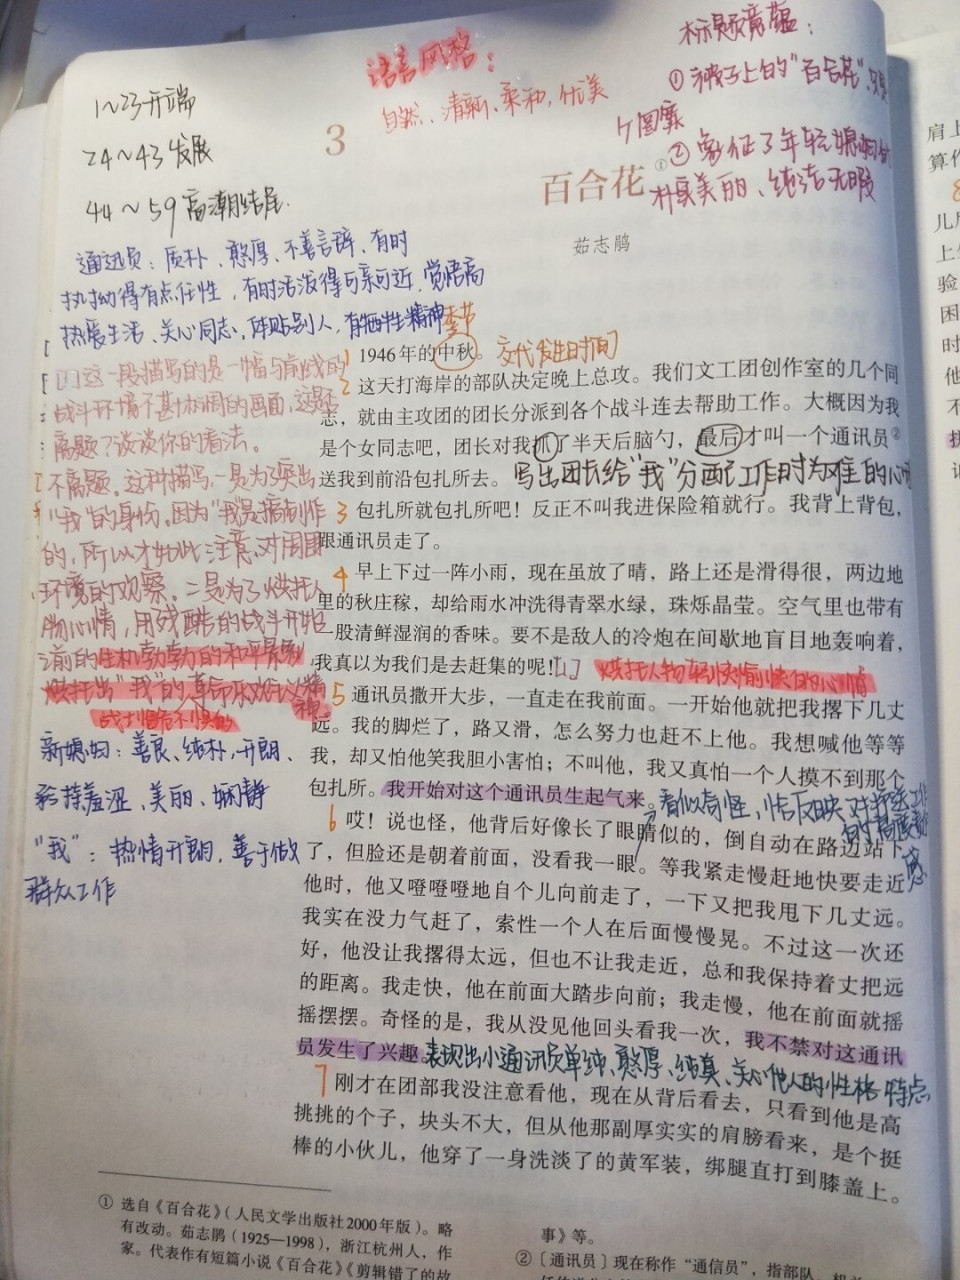 语言风格：
自然、清新、柔和、优美
标题意蕴：
①被子上的“百合花”
个图案
②象征了年轻媳妇的
朴实美丽、纯洁无暇
1～23开端
24～43发展
44～59高潮结尾.
3
百合花①
茹志鹃
通迅员：质朴、憨厚、不善言辞、有时
执拗得有点任性，有时活泼得可亲可近，觉悟高
热爱生活、关心同志，体贴别人，有牺牲精神
季节
1 1946年的中秋。交代发生时间
2 这天打海岸的部队决定晚上总攻。我们文工团创作室的几个同
志，就由主攻团的团长分派到各个战斗连去帮助工作。大概因为我
是个女同志吧，团长对我抓了半天后脑勺，最后才叫一个通讯员②
送我到前沿包扎所去。写出团长给“我”分配工作时为难的心
3 包扎所就包扎所吧！反正不叫我进保险箱就行。我背上背包，
跟通讯员走了。
4 早上下过一阵小雨，现在虽放了晴，路上还是滑得很，两边地
里的秋庄稼，却给雨水冲洗得青翠水绿，珠烁晶莹。空气里也带有
一股清鲜湿润的香味。要不是敌人的冷炮在间歇地盲目地轰响着，
我真以为我们是去赶集的呢！[1] 烘托人物轻快愉快的心情
5 通讯员撒开大步，一直走在我前面。一开始他就把我撂下几丈
远。我的脚烂了，路又滑，怎么努力也赶不上他。我想喊他等等
我，却又怕他笑我胆小害怕；不叫他，我又真怕一个人摸不到那个
包扎所。我开始对这个通讯员生起气来。
看似奇怪，恰反映
6 哎！说也怪，他背后好像长了眼睛似的，倒自动在路边站下
了，但脸还是朝着前面，没看我一眼。等我紧走慢赶地快要走近
他时，他又噔噔噔地自个儿向前走了，一下又把我甩下几丈远。
我实在没力气赶了，索性一个人在后面慢慢晃。不过这一次还
好，他没让我撂得太远，但也不让我走近，总和我保持着丈把远
的距离。我走快，他在前面大踏步向前；我走慢，他在前面就摇
摇摆摆。奇怪的是，我从没见他回头看我一次，我不禁对这通讯
员发生了兴趣。表现出小通讯员单纯、憨厚、纯真、关心他人的性格特点
7 刚才在团部我没注意看他，现在从背后看去，只看到他是高
挑挑的个子，块头不大，但从他那副厚实实的肩膀看来，是个挺
棒的小伙儿，他穿了一身洗淡了的黄军装，绑腿直打到膝盖上。
[1]这一段描写的是一幅与前线的
战斗环境不甚协调的画面，这是否
离题？谈谈你的看法。
不离题。这种描写一是为了突出
“我”的身份。因为“我”是搞创作
的，所以才如此注意对周围
环境的观察。二是为了烘托人
物心情，用残酷的战斗开始
前的生机勃勃的和平景象
烘托出“我”的革命乐观主义精
神。
新媳妇：善良、纯朴，开朗、
矜持羞涩、美丽、娴静
“我”：热情开朗，善于做
群众工作
① 选自《百合花》（人民文学出版社2000年版）。略
有改动。茹志鹃（1925—1998），浙江杭州人，作
家。代表作有短篇小说《百合花》《剪辑错了的故
事》等。
②〔通讯员〕现在称作“通信员”，指部队、机关
肩上
算作
儿
上
验
困
时
他
不